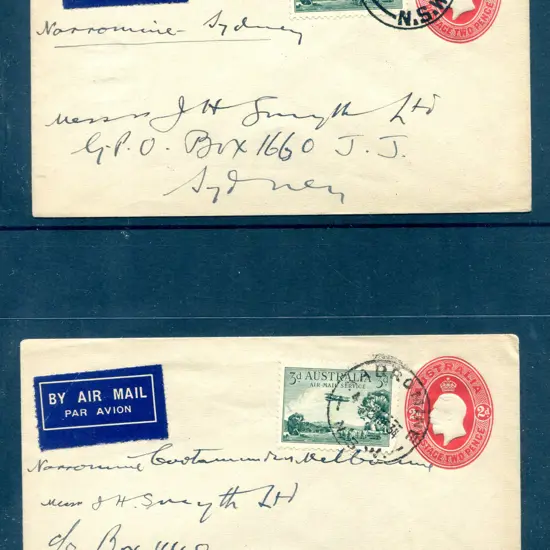 N.S.W
TAGE TWO PENCE
Narromine - Sydney
Messrs J H Smyth Ltd
G.P.O. Box 1660 J.J.
Sydney
BY AIR MAIL
PAR AVION
3d AUSTRALIA 3d
AIR MAIL SERVICE
N.S.W
STRALIA
2d 2d
STAGE TWO PENCE
Narromine Cootamundra Melbourne
Messrs J H Smyth Ltd
c/o Box